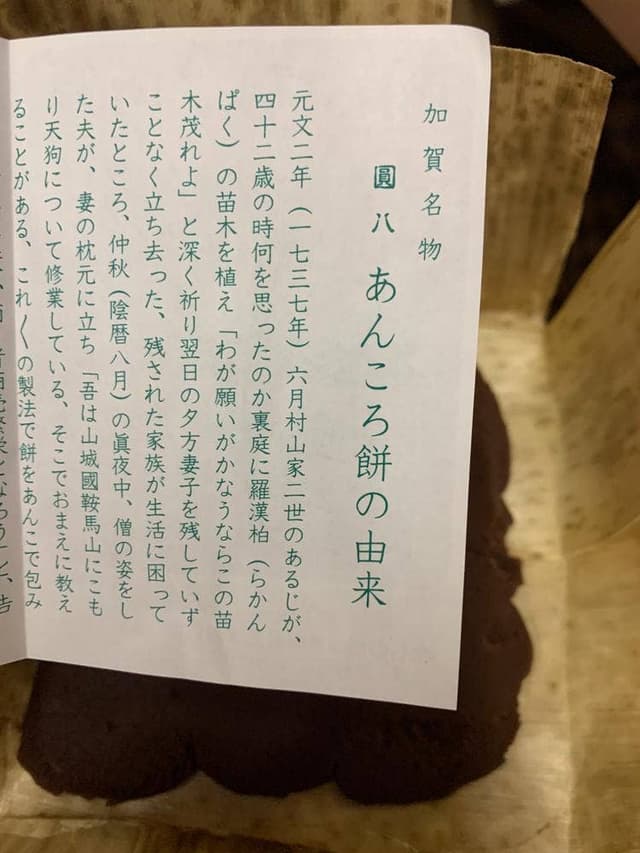 加賀名物
圓八 あんころ餅の由来
元文二年（一七三七年）六月村山家二世のあるじが、
四十二歳の時何を思ったのか裏庭に羅漢柏（らかん
ぱく）の苗木を植え「わが願いがかなうならこの苗
木茂れよ」と深く祈り翌日の夕方妻子を残していず
ことなく立ち去った、残された家族が生活に困って
いたところ、仲秋（陰暦八月）の眞夜中、僧の姿をし
た夫が、妻の枕元に立ち「吾は山城國鞍馬山にこも
り天狗について修業している、そこでおまえに教え
ることがある、これ〱の製法で餅をあんこで包み